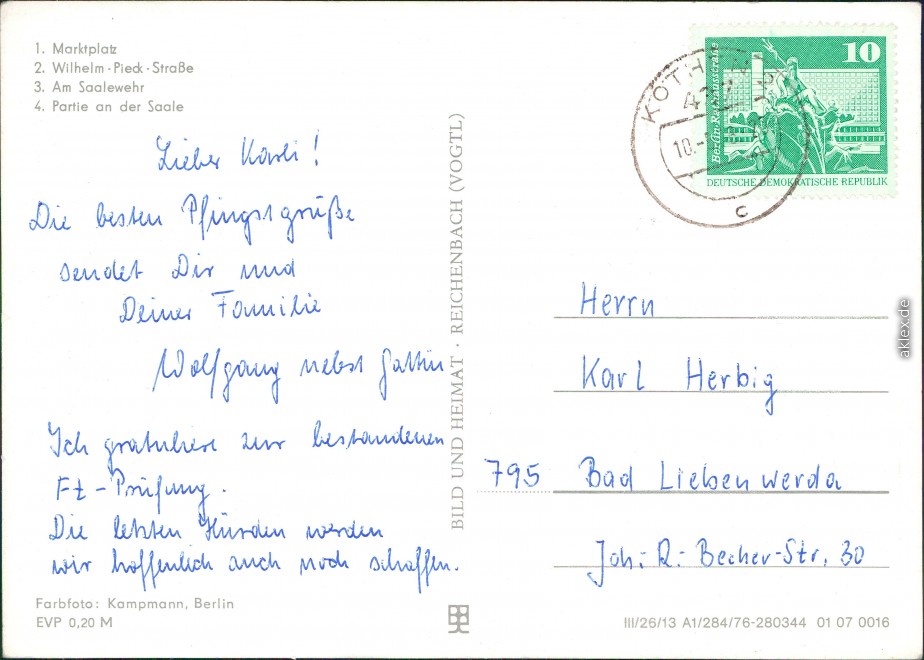 1. Marktplatz
2. Wilhelm-Pieck-Straße
3. Am Saalewehr
4. Partie an der Saale
Lieber Karli!
Die besten Pfingstgrüße
sendet Dir und
Deiner Familie
Wolfgang nebst Gattin
Ich gratuliere zur bestandenen
Fz-Prüfung.
Die letzten Hürden werden
wir hoffentlich auch noch schaffen.
Farbfoto: Kampmann, Berlin
EVP 0,20 M
BILD UND HEIMAT · REICHENBACH (VOGTL)
KÖTHEN
10.
c
10
Berlin, Rathausstraße
DEUTSCHE DEMOKRATISCHE REPUBLIK
Herrn
Karl Herbig
795 Bad Liebenwerda
Joh.-R.-Becher-Str. 30
III/26/13 A1/284/76-280344 01 07 0016
aklex.de